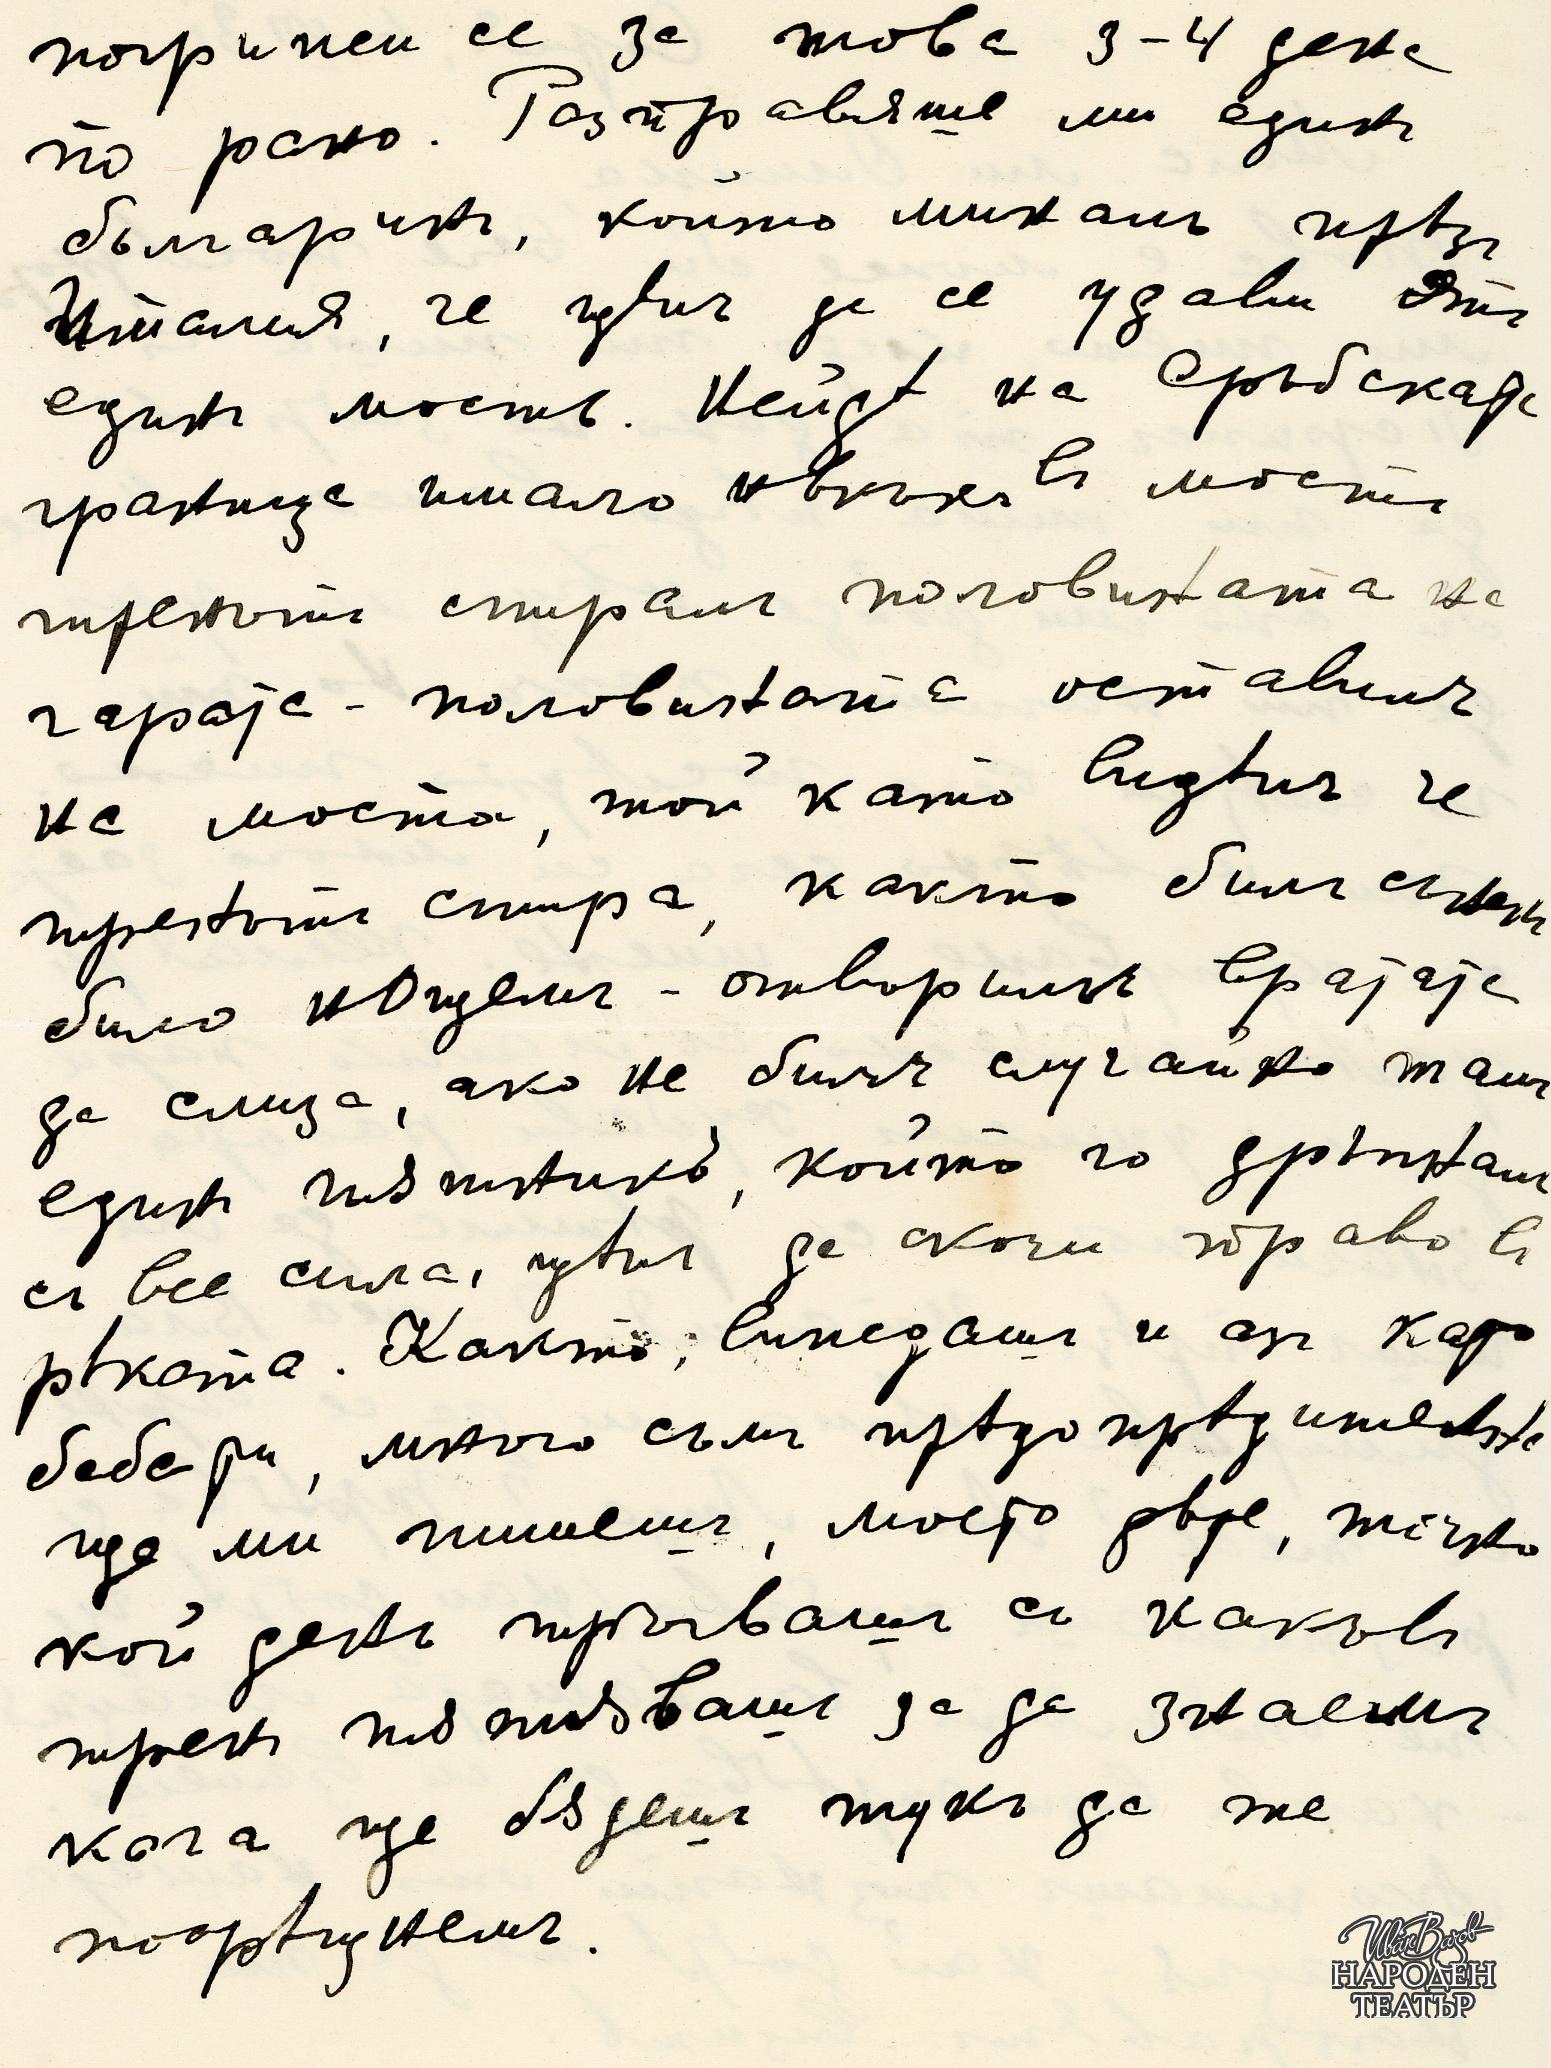 погрижи се за това 3-4 дена
по рано. Разправяше ми единъ
българинъ, който миналъ прѣзъ
Италия, че щѣлъ да се удави отъ
единъ мостъ. Нейдѣ на Сръбската
граница имало нѣкъкъвъ мостъ
тренътъ спиралъ половината на
гарата - половината оставилъ
на моста, той като видѣлъ че
тренътъ спира, както билъ сънен
било нощемъ - отворилъ вратата
да слиза, ако не билъ случайно тамъ
единъ пѫтникъ, който го дръпналъ
съ все сила, щѣлъ да скочи право въ
рѣката. Както, виждашъ и азъ като
баба ти, много съмъ прѣдопрѣдителна
ще ми пишешъ, моето дѣте, точно
кой день тръгвашъ съ какъвъ
тренъ пѫтувашъ за да знаемъ
кога ще бѫдешъ тукъ да те
посрѣщнемъ.
Иван Вазов
НАРОДЕН
ТЕАТЪР